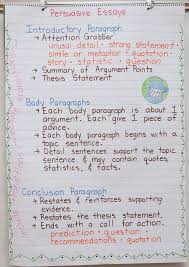 Persuasive Essays
Introductory Paragraph
→ Attention Grabber
unusual detail · strong statement
simile or metaphor · quotation
story · statistic · question
→ Summary of Argument Points
→ Thesis Statement
Body Paragraphs
→ Each body paragraph is about 1
argument. Each give 1 piece of
advice.
→ Each body paragraph begins with a
topic sentence.
→ Detail sentences support the topic
sentence & may contain quotes,
statistics, & facts.
Conclusion Paragraph
→ Restates & reinforces supporting
evidence.
→ Restates the thesis statement.
→ Ends with a call for action.
prediction · question ·
recommendations · quotation